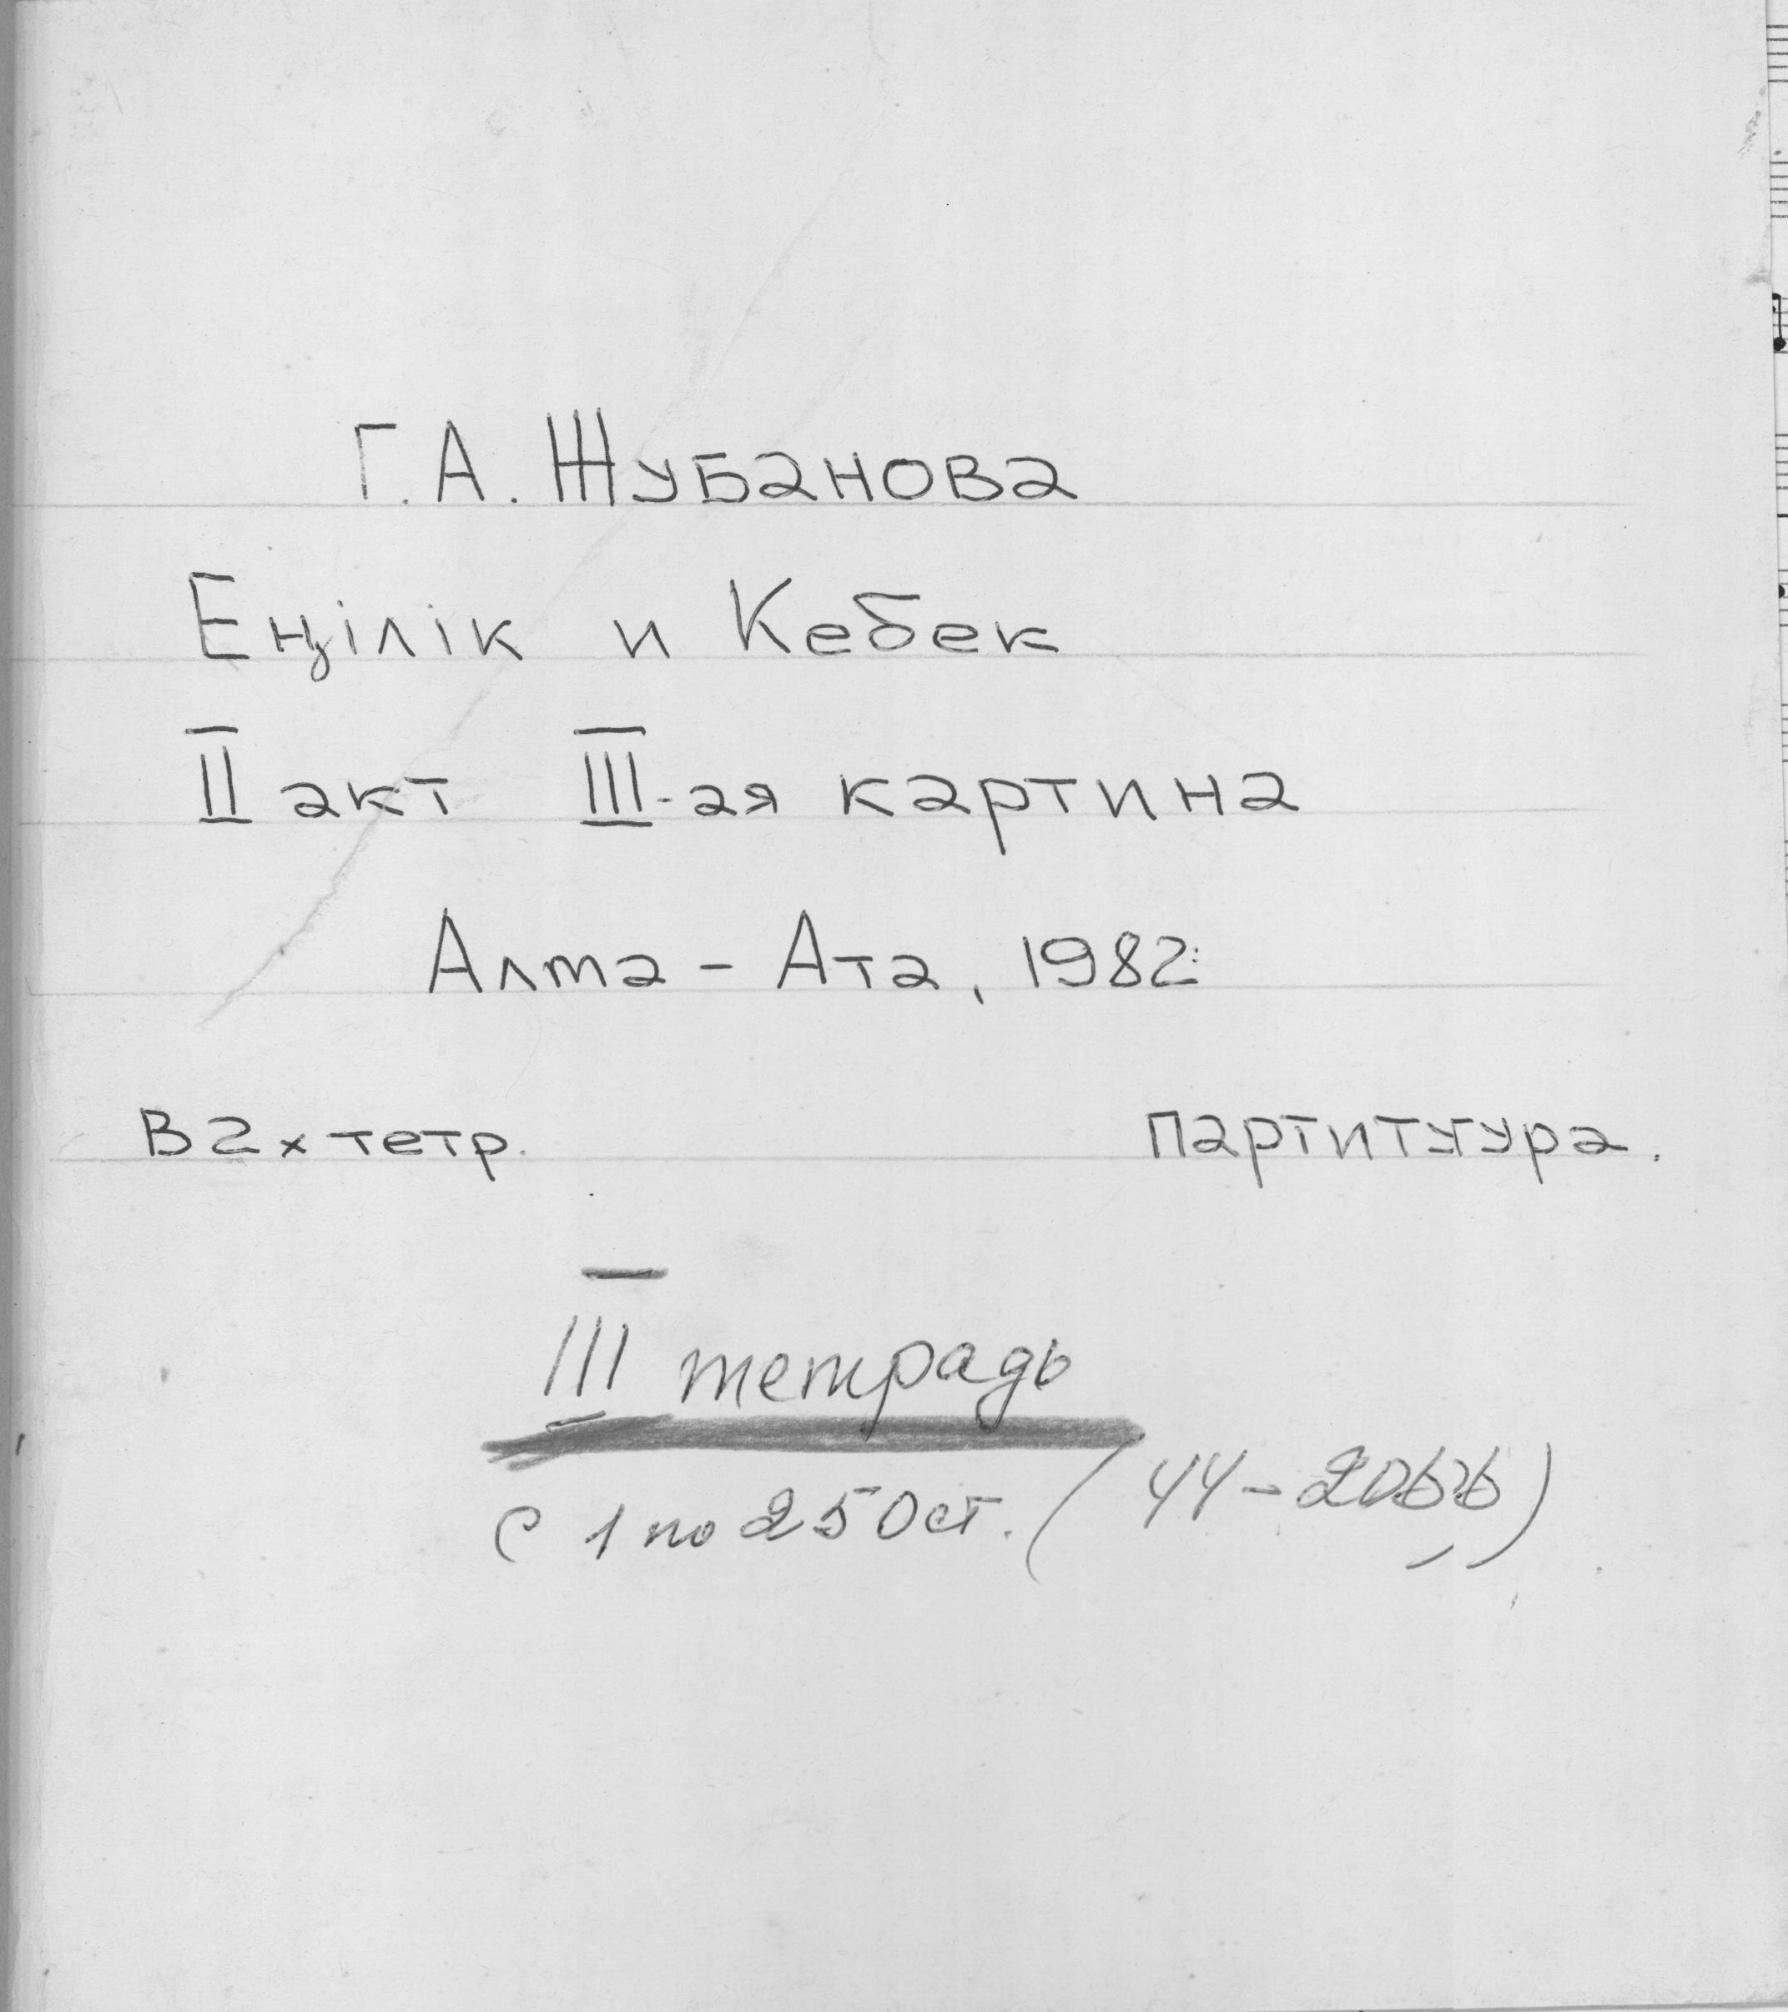 Г.А. Жубанова
Еңілік и Кебек
II акт III-ая картина
Алма-Ата, 1982
В 2х тетр. партитура.
III тетрадь
с 1 по 250 ст. (44-